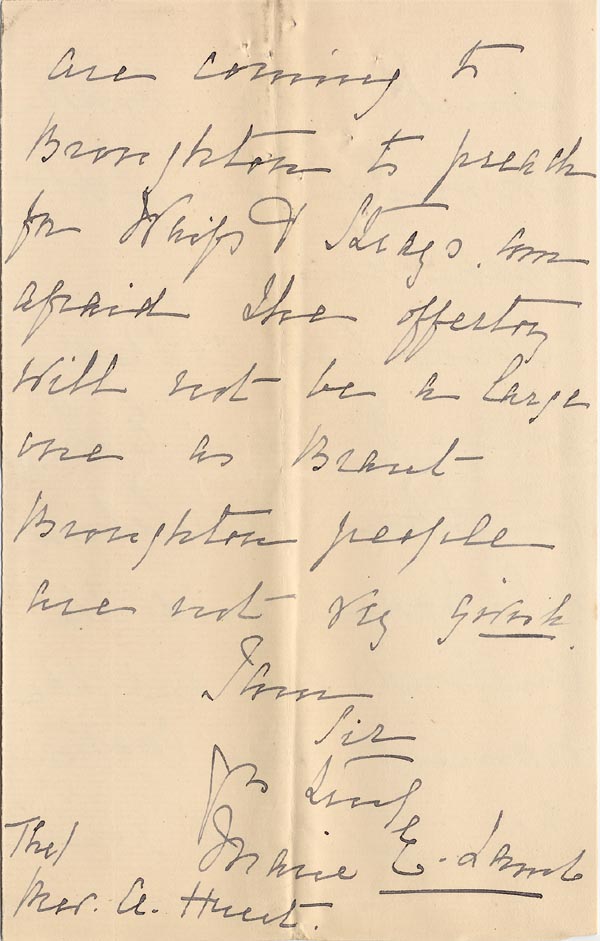 are coming to
Broughton to preach
for Waifs & Strays. am
afraid the offertory
will not be a large
one as Brant
Broughton people
are not very givish.
I am
Sir
Yrs truly
Marie E. Lamb
The/
Rev. A. Hunt.